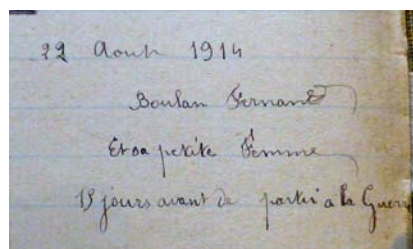 22 Aout 1914
Boulan Fernand
Et sa petite Femme
15 jours avant de partir a la Guerre